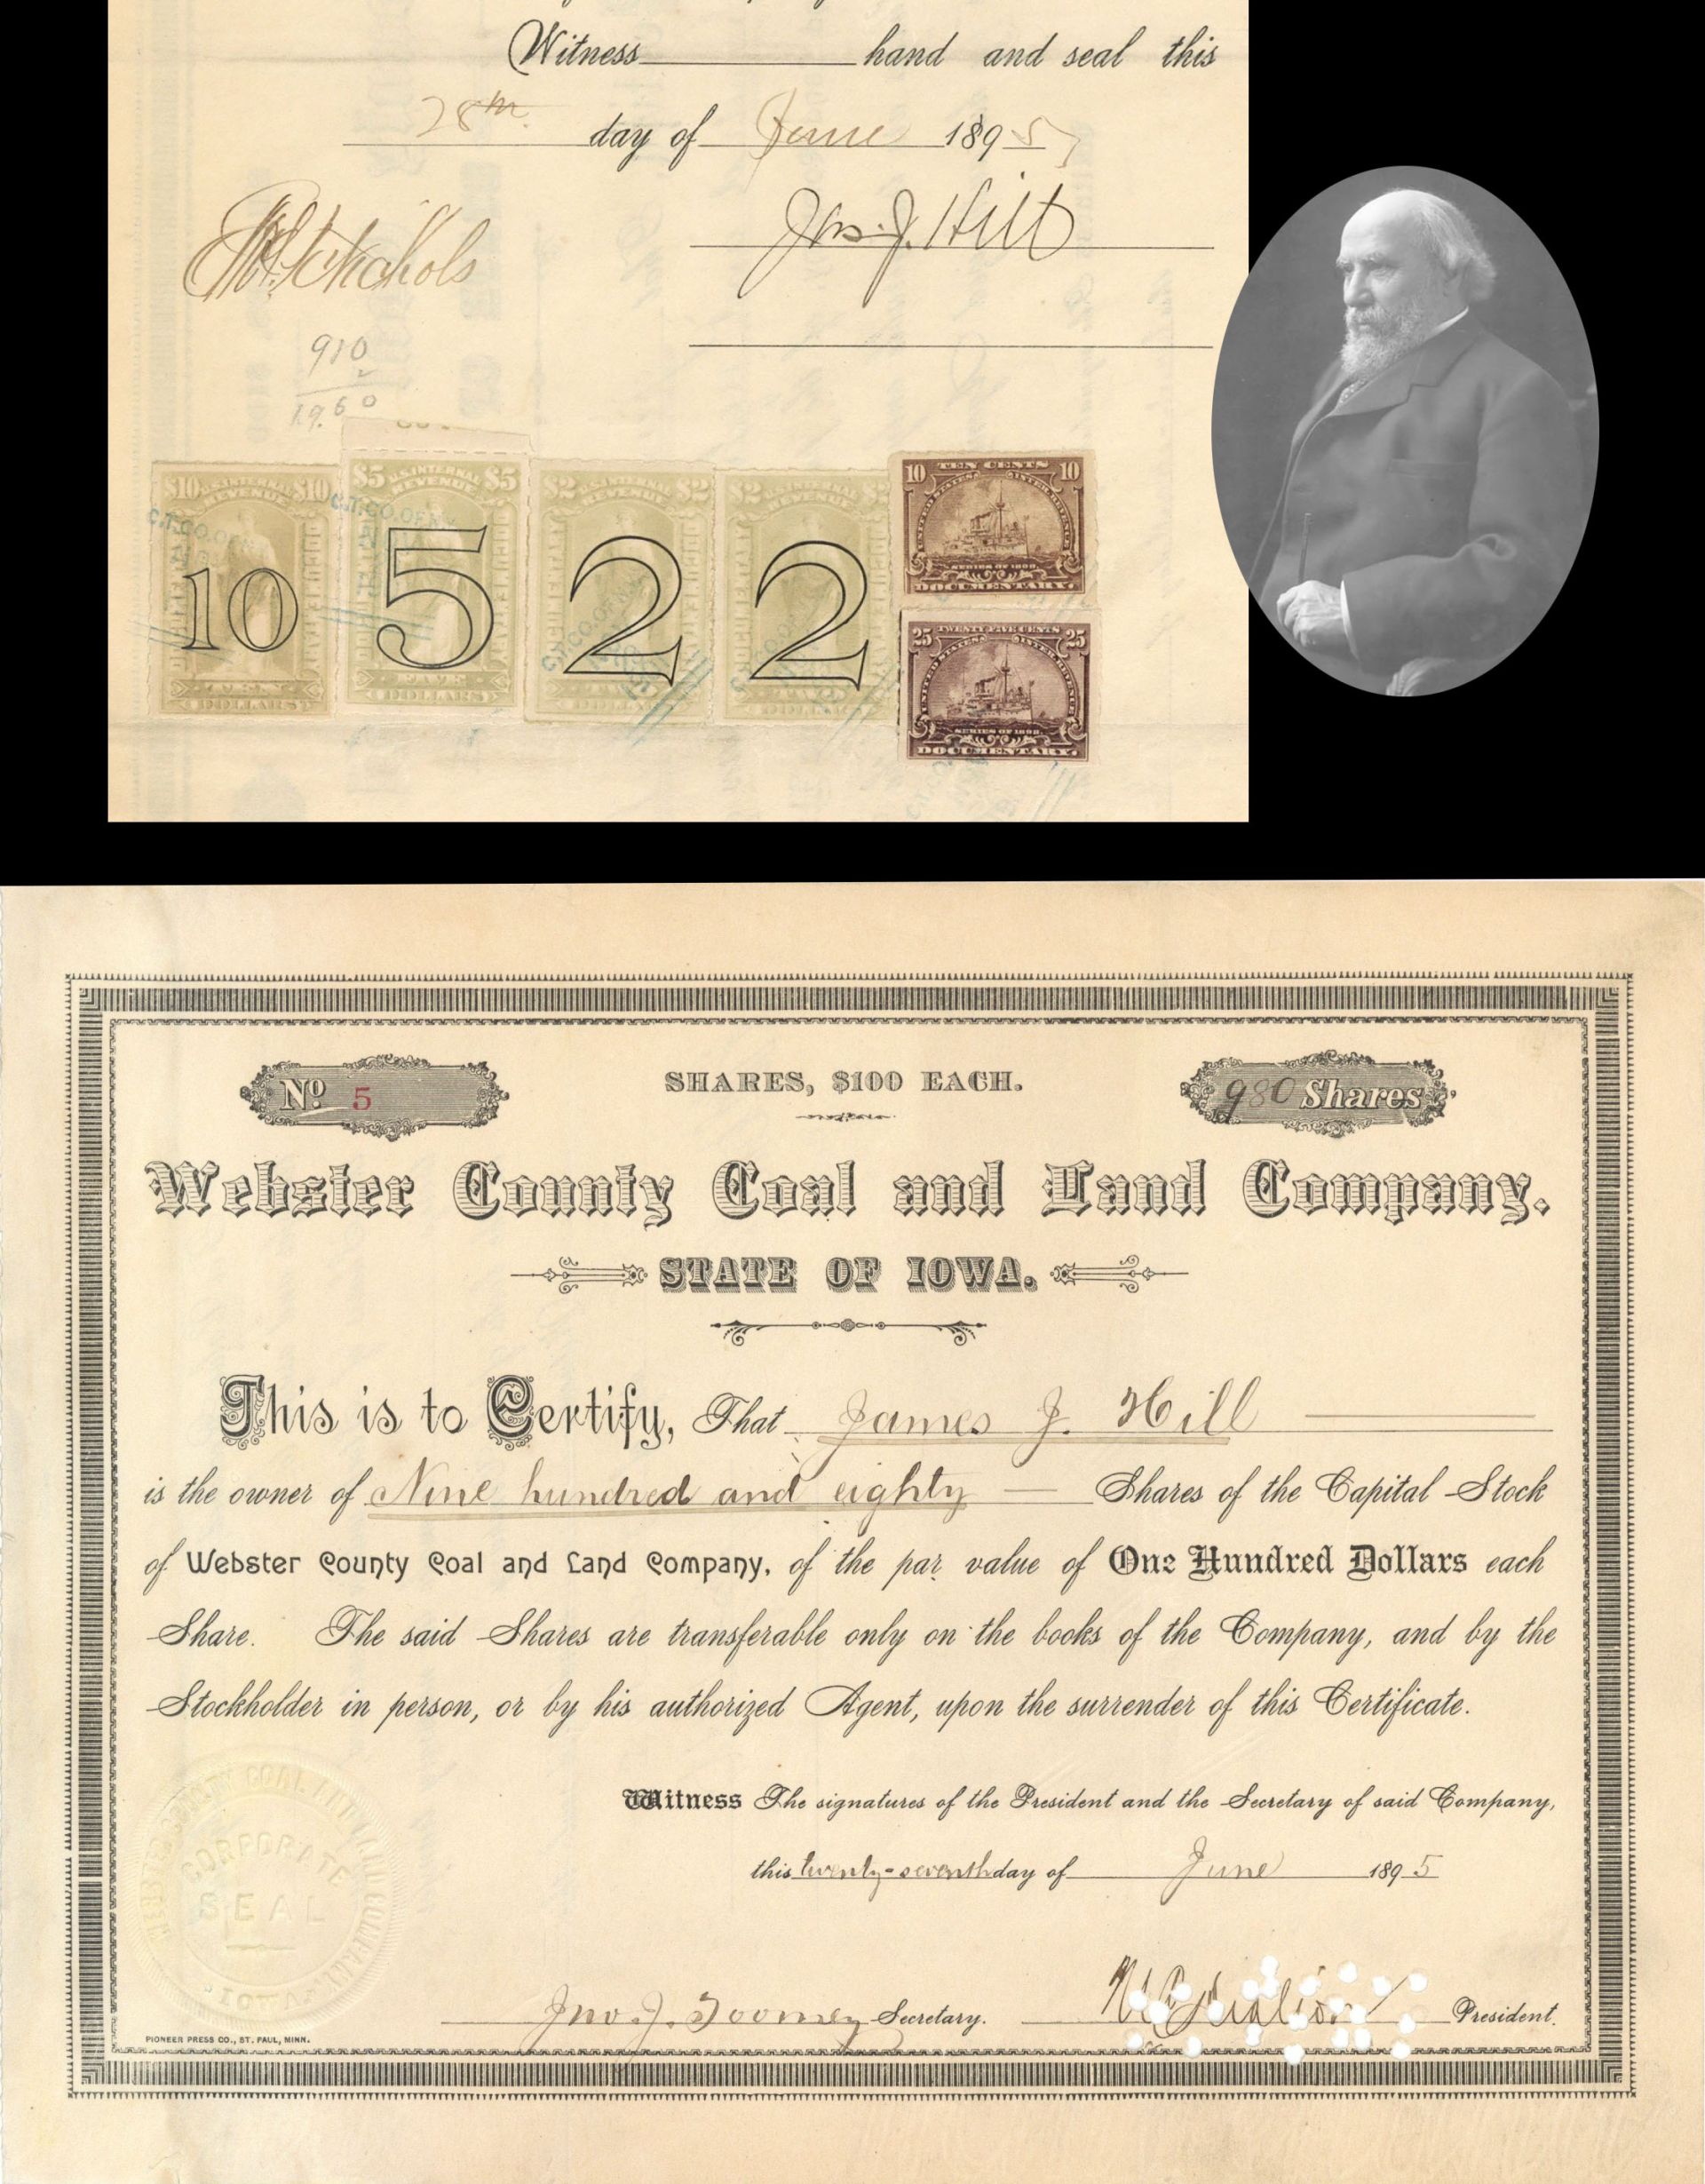 Witness hand and seal this
28th day of June 1895
Jas. J. Hill
910
2
19.60
$10 U.S. INTERNAL REVENUE $10
10
TEN
DOLLARS
$5 U.S. INTERNAL $5
REVENUE
5
FIVE
DOLLARS
$2 U.S. INTERNAL $2
REVENUE
2
DOLLARS
$2 U.S. INTERNAL
REVENUE
2
DOLLARS
10 TEN CENTS 10
UNITED STATES INTER. REVENUE
SERIES OF 1898.
DOCUMENTARY.
25 TWENTY FIVE CENTS 25
UNITED STATES INTER. REVENUE
SERIES OF 1898.
DOCUMENTARY.
No. 5
SHARES, $100 EACH.
980 Shares
Webster County Coal and Land Company.
STATE OF IOWA.
This is to Certify, That James J. Hill
is the owner of Nine hundred and eighty Shares of the Capital Stock
of Webster County Coal and Land Company, of the par value of One Hundred Dollars each
Share. The said Shares are transferable only on the books of the Company, and by the
Stockholder in person, or by his authorized Agent, upon the surrender of this Certificate.
Witness The signatures of the President and the Secretary of said Company,
this twenty-seventh day of June 1895
CORPORATE
SEAL
IOWA
Jno. J. Toomey Secretary.
President.
PIONEER PRESS CO., ST. PAUL, MINN.